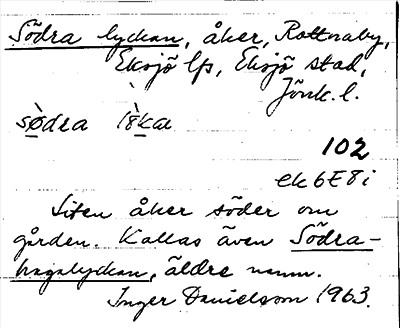 Södra lyckan, åker, Rottnaby,
Eksjö lfs, Eksjö stad,
Jönk. l.
södra
102
ek 6E8i
Liten åker söder om
gården. Kallas även Södra-
hagalyckan, äldre namn.
Inger Danielsson 1963.